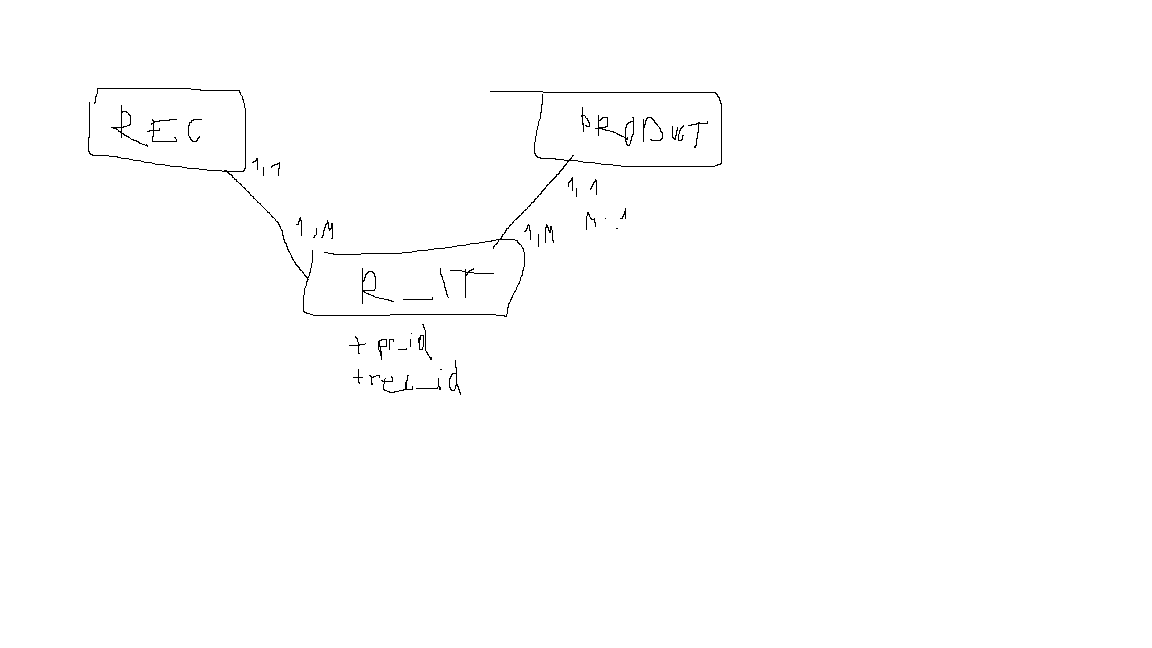 REC
PRODUCT
1,1
1,1
1,M
1,M
M:1
R_IT
+ pr_id
+rec_id